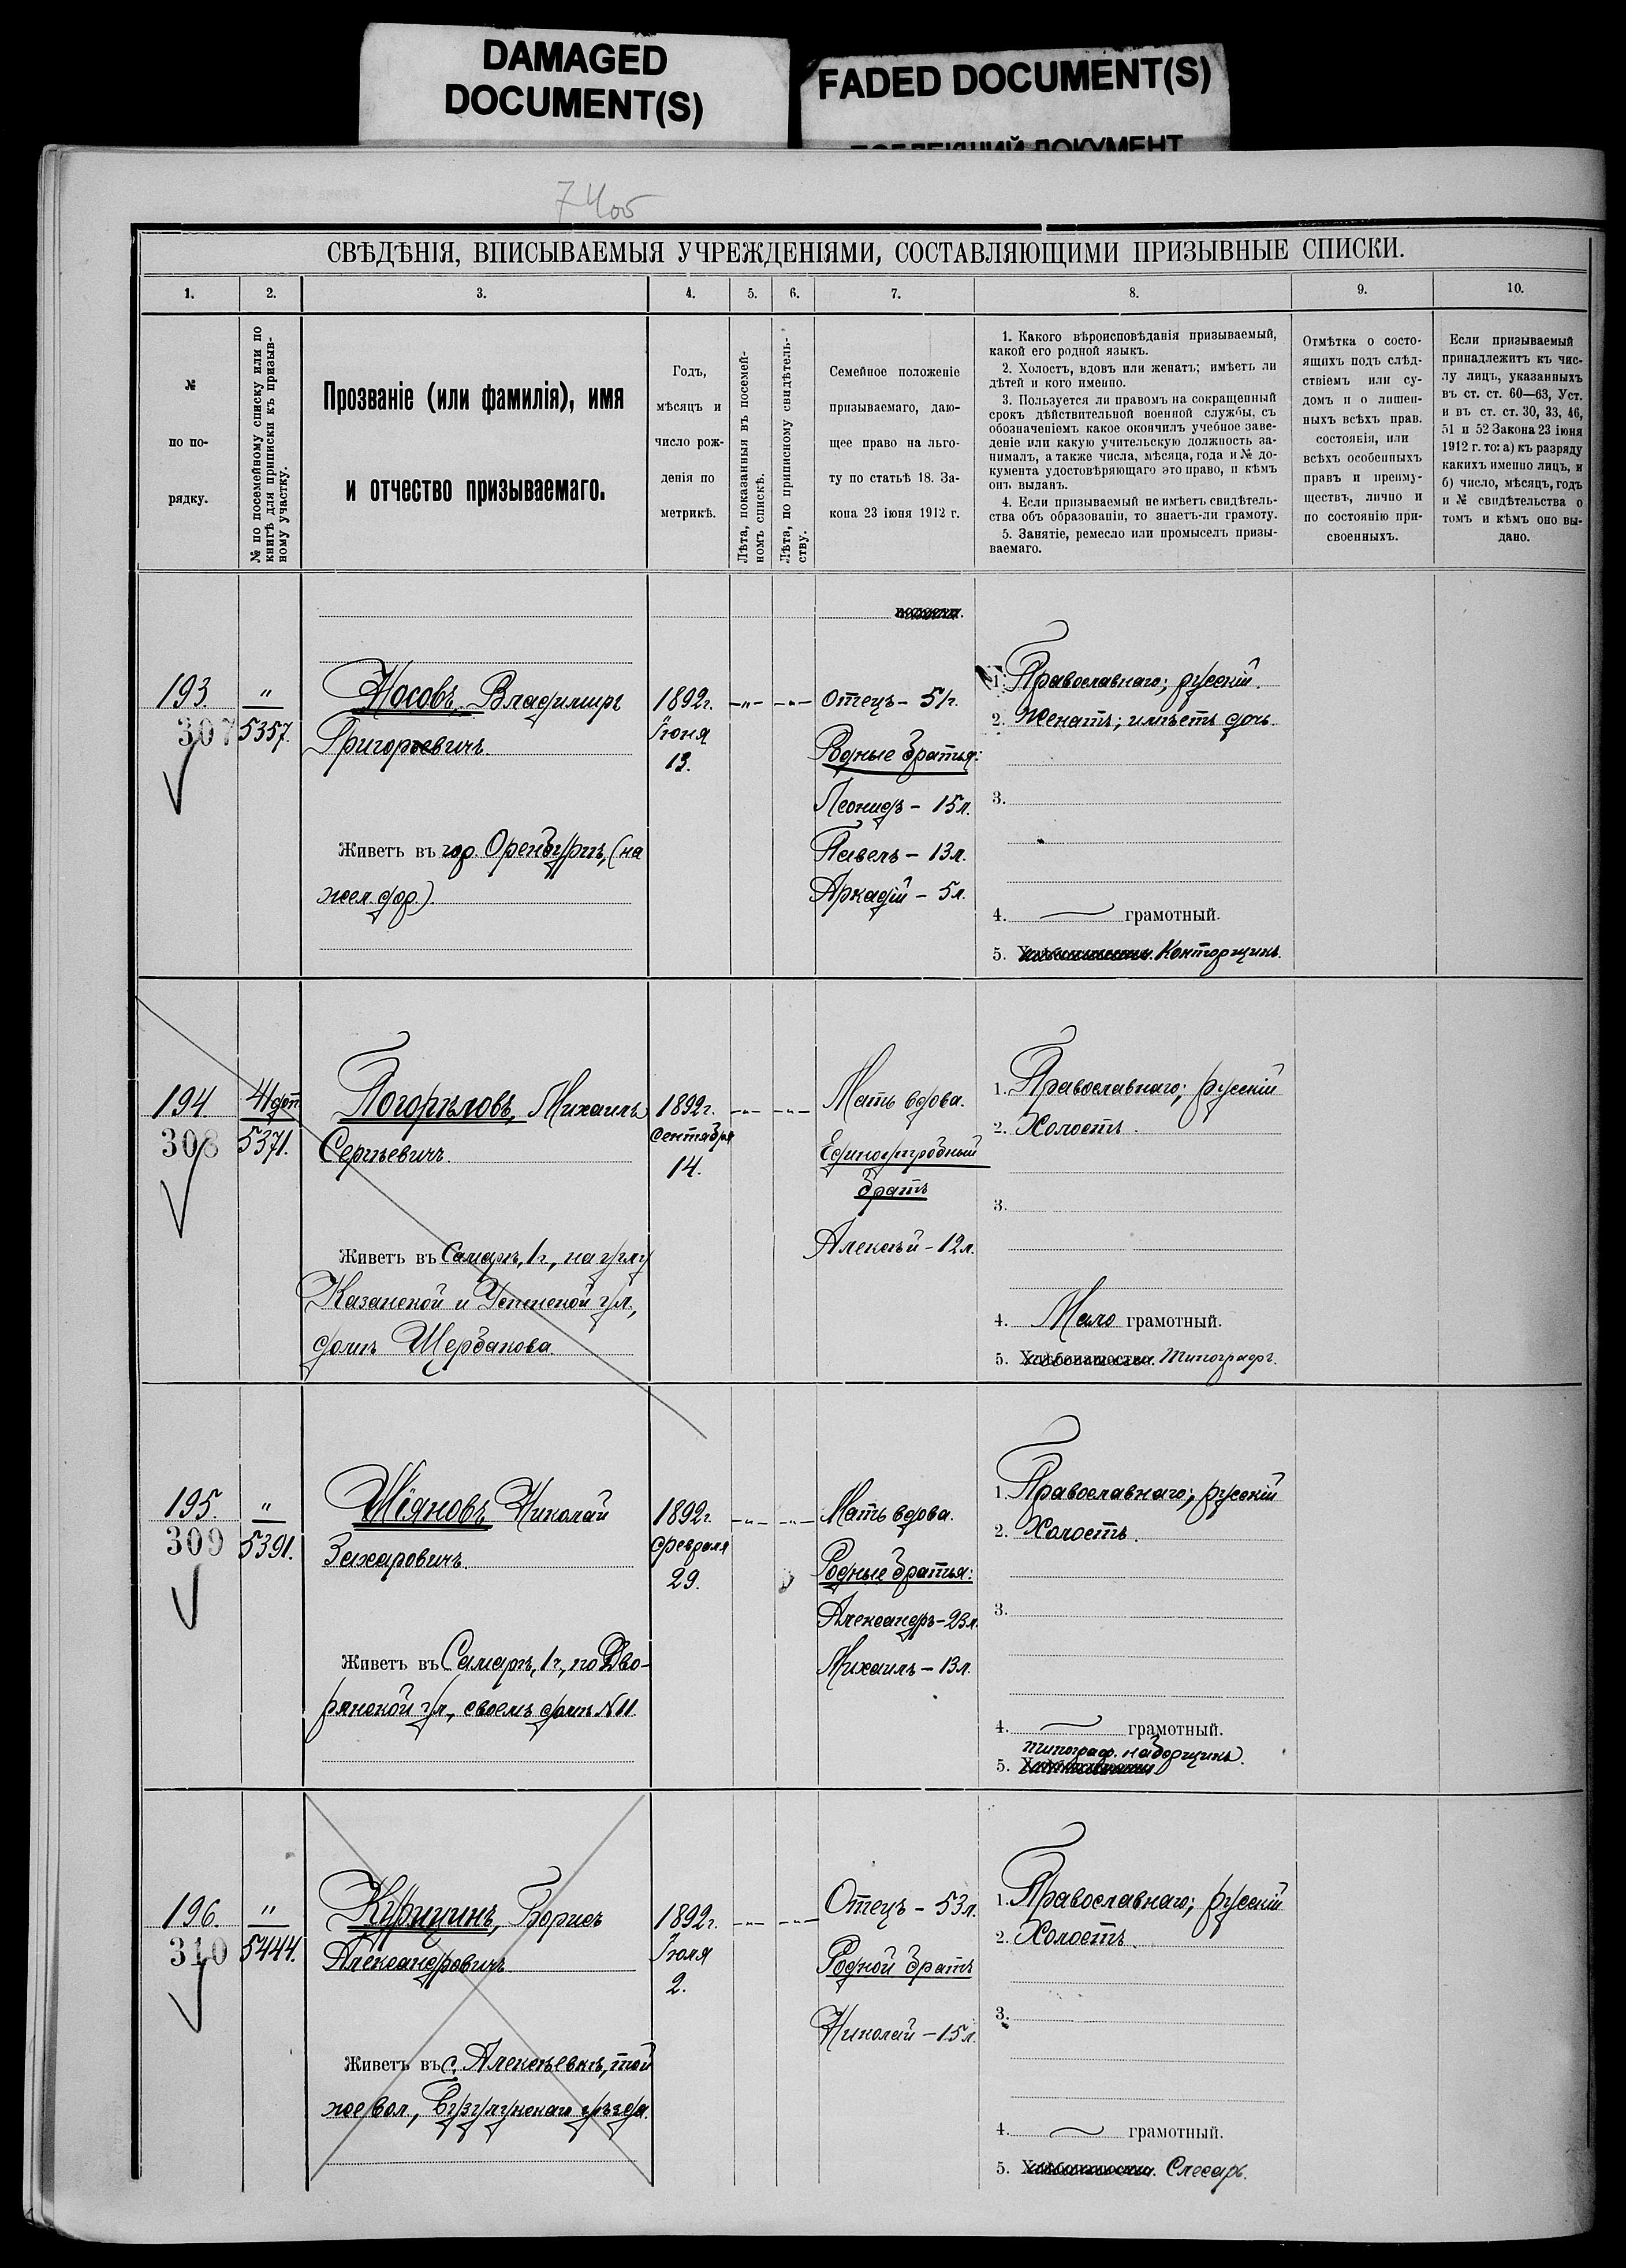 DAMAGED
DOCUMENT(S)
FADED DOCUMENT(S)
7400
СВѢДѢНІЯ, ВПИСЫВАЕМЫЯ УЧРЕЖДЕНІЯМИ, СОСТАВЛЯЮЩИМИ ПРИЗЫВНЫЕ СПИСКИ.
1. 2. 3. 4. 5. 6. 7. 8. 9. 10.
№
по по-
рядку.
№ по посемейному списку или по
книгѣ для приписки къ призыв-
ному участку.
Прозваніе (или фамилія), имя
и отчество призываемаго.
Годъ,
мѣсяцъ и
число рож-
денія по
метрикѣ.
Лѣта, показанныя въ посемей-
номъ спискѣ.
Лѣта, по приписному свидѣтель-
ству.
Семейное положеніе
призываемаго, даю-
щее право на льго-
ту по статьѣ 18. За-
кона 23 іюня 1912 г.
1. Какого вѣроисповѣданія призываемый,
какой его родной языкъ.
2. Холостъ, вдовъ или женатъ; имѣетъ ли
дѣтей и кого именно.
3. Пользуется ли правомъ на сокращенный
срокъ дѣйствительной военной службы, съ
обозначеніемъ какое окончилъ учебное заве-
деніе или какую учительскую должность за-
нималъ, а также числа, мѣсяца, года и № до-
кумента удостовѣряющаго это право, и кѣмъ
онъ выданъ.
4. Если призываемый не имѣетъ свидѣтель-
ства объ образованіи, то знаетъ-ли грамоту.
5. Занятіе, ремесло или промыселъ призы-
ваемаго.
Отмѣтка о состо-
ящихъ подъ слѣд-
ствіемъ или су-
домъ и о лишен-
ныхъ всѣхъ прав.
состоянія, или
всѣхъ особенныхъ
правъ и преиму-
ществъ, лично и
по состоянію при-
своенныхъ.
Если призываемый
принадлежитъ къ чис-
лу лицъ, указанныхъ
въ ст. ст. 60—63, Уст.
и въ ст. ст. 30, 33, 46,
51 и 52 Закона 23 іюня
1912 г. то: а) къ разряду
какихъ именно лицъ, и
б) число, мѣсяцъ, годъ
и № свидѣтельства о
томъ и кѣмъ оно вы-
дано.
193.
307
"
5357.
Носовъ Владимиръ
Григорьевичъ.
Живетъ въ гор. Оренбургѣ, (на
жел. дор.).
1892г.
Іюня
13.
-"- -"-
Отецъ - 51г.
Родные братья:
Леонидъ - 15л.
Павелъ - 13л.
Аркадій - 5л.
1. Православнаго; русскій.
2. Женатъ; имѣетъ дочь.
3.
4. грамотный.
5. Конторщикъ.
194
308
4 доп
5371.
Погорѣловъ, Михаилъ
Сергѣевичъ.
Живетъ въ Самарѣ, 1ч., на углу
Казанской и Успенской ул.,
домъ Щербакова.
1892г.
Сентября
14.
-"- -"-
Мать вдова.
Единоутробный
братъ
Алексѣй - 12л.
1. Православнаго; русскій
2. Холостъ.
3.
4. Мало грамотный.
5. Хлѣбопашество. Типографъ.
195.
309
"
5391.
Міяновъ Николай
Захаровичъ.
Живетъ въ Самарѣ, 1ч., по Дво-
рянской ул., своемъ домѣ №11
1892г.
февраля
29.
-"- -"-
Мать вдова.
Родные братья:
Александръ - 23л.
Михаилъ - 13л.
1. Православнаго; русскій
2. Холостъ.
3.
4. грамотный.
типограф. наборщикъ.
5.
196.
310
"
5444.
Курицинъ, Борисъ
Александровичъ.
Живетъ въ с. Алексѣевкѣ, той
же вол., Бузулукскаго уѣзда.
1892г.
Іюля
2.
-"- -"-
Отецъ - 53л.
Родной братъ
Николай - 15л.
1. Православнаго; русскій
2. Холостъ.
3.
4. грамотный.
5. Слесарь.